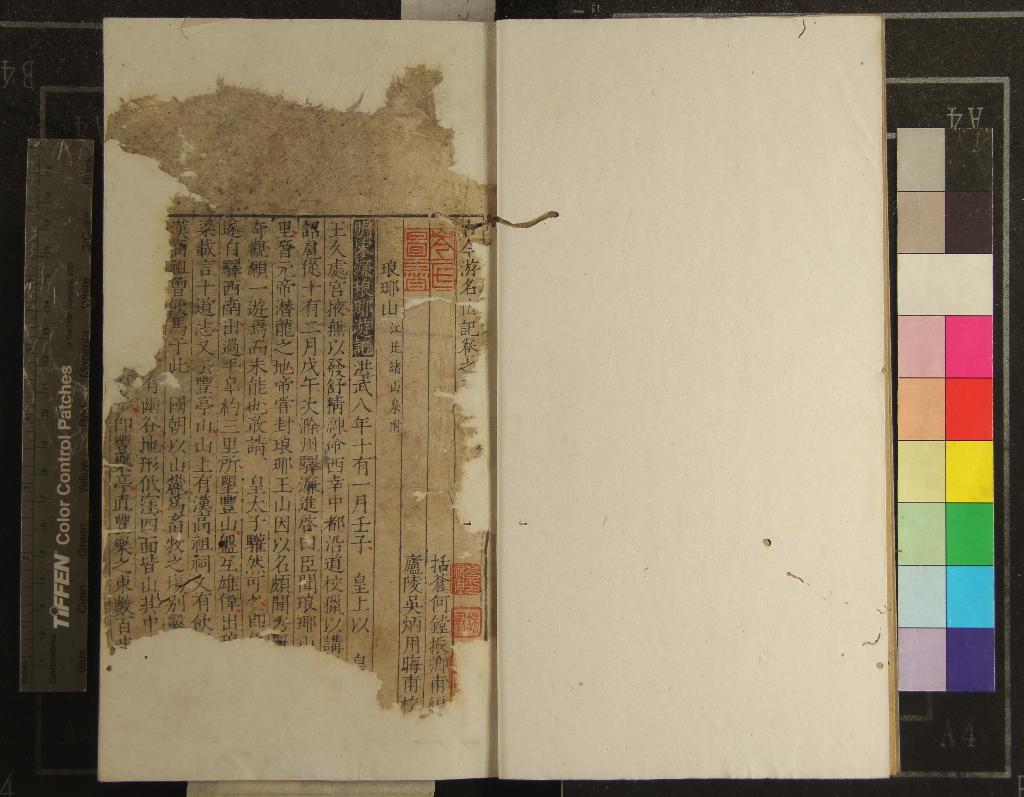 今游名山記卷之
括蒼何鏜振卿甫編
廬陵吳炳用晦甫校
琅邪山 江丘諸山泉附
明宋濂琅琊遊記 洪武八年十有一月壬子 皇上以 皇
王久處宮掖無以發舒精神命西幸中都沿道校獵以講
詔扈從十有二月戊午次滁州驛濂進啓曰臣聞琅琊山
里晉元帝潛龍之地帝嘗封琅琊王山因以名頗聞秀麗
奇觀願一遊焉而未能也敢請 皇太子驩然可之即
遂自驛西南出過平皐約三里所望豐山盤互雄偉出琅
梁載言十道志又云豐亭山山上有漢高祖祠又有飲
漢高祖曾飲馬于此 國朝以山麓為畜牧之場別鑿
有幽谷地形低窪四面皆山其中
即豐樂亭直豐樂之東數百步
TIFFEN Color Control Patches
Centimetres
Blue
Cyan
Green
Yellow
A4
A4
B4